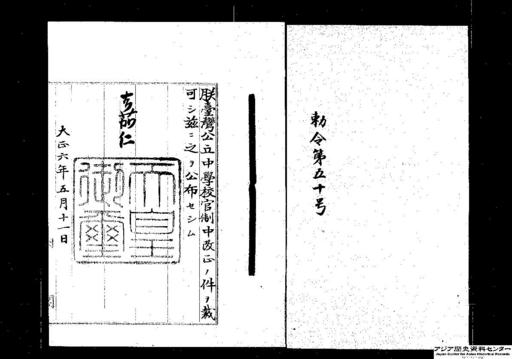 勅令第五十号
朕臺灣公立中學校官制中改正ノ件ヲ裁
可シ茲ニ之ヲ公布セシム
嘉仁
天皇
御璽
大正六年五月十一日
アジア歴史資料センター
Japan Center for Asian Historical Records